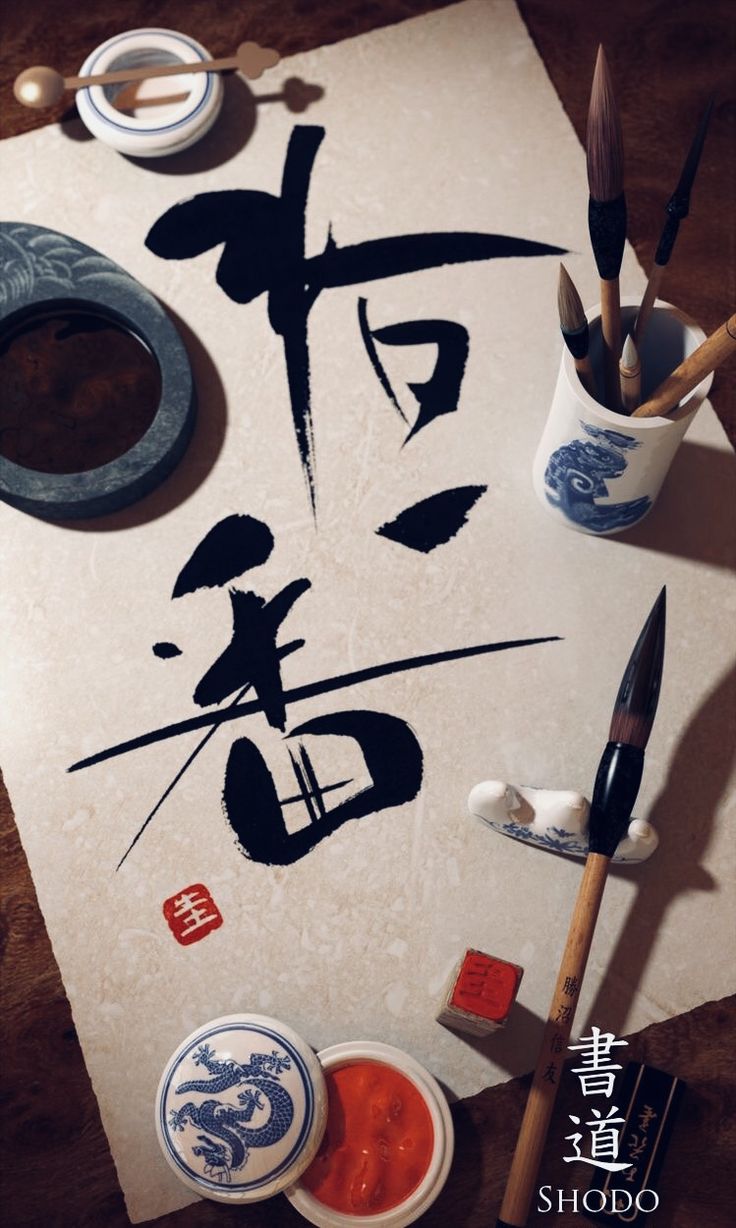 番
圭
圭
勝沼信友
書道
SHODO